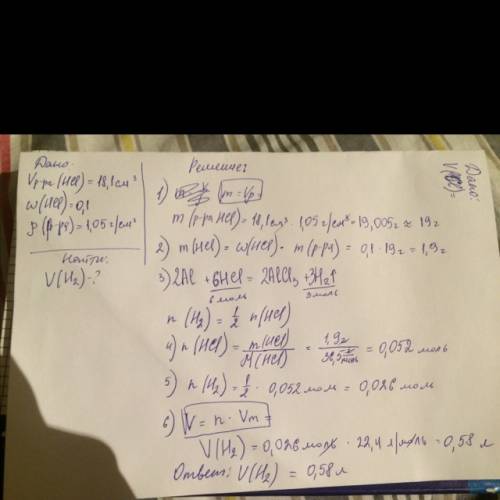 Дано:
Vр-р (HCl) = 18,1 см³
ω(HCl) = 0,1
ρ(р-ра) = 1,05 г/см³
Найти:
V(H₂) - ?
Решение:
1) m = Vρ
m(р-ра HCl) = 18,1 см³ · 1,05 г/см³ = 19,005 г ≈ 19 г
2) m(HCl) = ω(HCl) · m(р-ра) = 0,1 · 19 г = 1,9 г
3) 2Al + 6HCl = 2AlCl₃ + 3H₂↑
6 моль 3 моль
n(H₂) = 1/2 n(HCl)
4) n(HCl) = m(HCl)/M(HCl) = 1,9 г/36,5 г/моль = 0,052 моль
5) n(H₂) = 1/2 · 0,052 моль = 0,026 моль
6) V = n · Vm
V(H₂) = 0,026 моль · 22,4 л/моль = 0,58 л
Ответ: V(H₂) = 0,58 л
Дано: